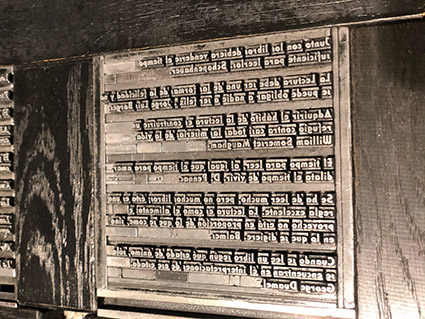 Junto con los libros debiera venderse el tiempo
suficiente para leerlos. Schopenhauer.
La lectura debe ser una de las formas de la felicidad y
no se puede obligar a nadie a ser feliz. Jorge Luis Borges
Adquirir el hábito de la lectura es construirse un
refugio contra casi todas las miserias de la vida.
William Somerset Maugham.
El tiempo para leer, al igual que el tiempo para amar,
dilata el tiempo de vivir. D. Pennac.
Se ha de leer mucho, pero no muchos libros; ésta es una
regla excelente. La lectura es como el alimento; el
provecho no está en proporción de lo que se come, sino
en la que se digiere. Balmes.
Cuando
se encuentran
George Duamel